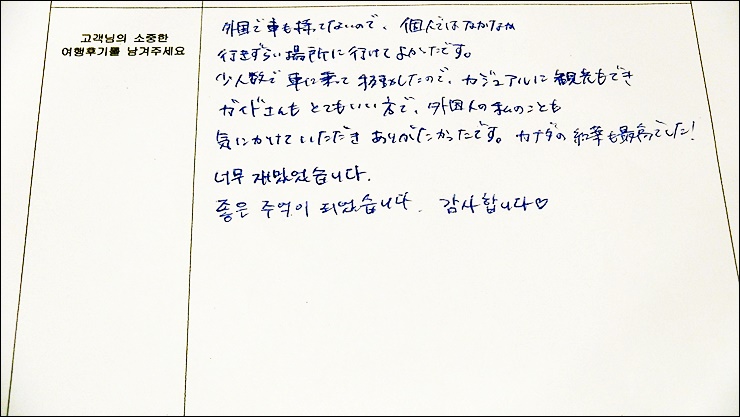 고객님의 소중한
여행후기를 남겨주세요
外国で車も持ってないので、個人ではなかなか
行きずらい場所に行けてよかたです。
少人数で車に乗って移動したので、カジュアルに観光もでき
ガイドさんもとてもいい方で、外国人の私のことも
気にかけていただきありがたかったです。カナダの紅葉も最高でした!
너무 재밌었습니다.
좋은 추억이 되었습니다. 감사합니다♡